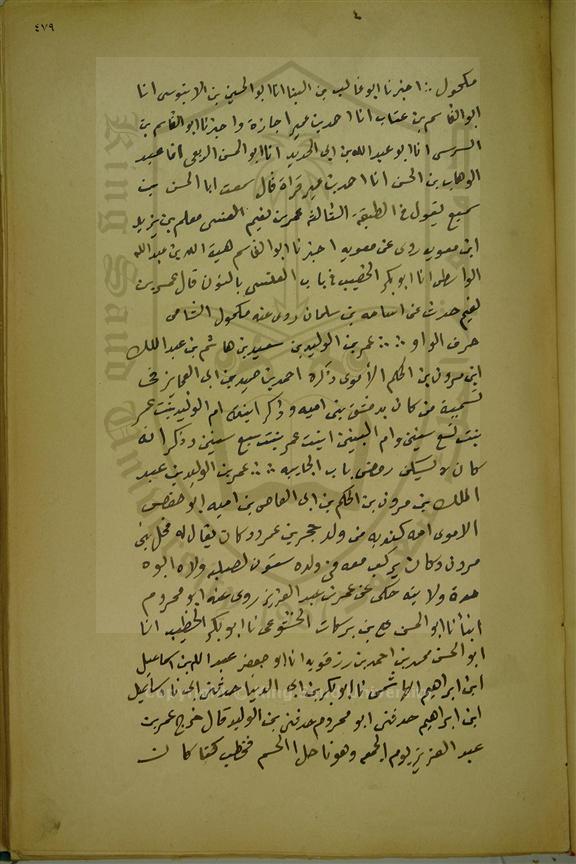 ٤
٤٧٩
مكحول :: اخبرنا ابو غالب بن البنا انا ابو الحسين بن الابنوسي انا
ابو القاسم بن عتاب انا احمد بن عمير اجازة واخبرنا ابو القاسم بن
السوسي انا ابو عبد الله بن ابي الحديد انا ابو الحسن الربعي انا عبد
الوهاب بن الحسن انا احمد بن عمير قراة قال سمعت ابا الحسن بن
سميع يقول في الطبقة الثالثة عمر بن نعيم العنسي معلم بن يزيد
ابن معويه روى عن معويه اخبرنا ابو القاسم هبة الله بن عبد الله
الواسطي انا ابو بكر الخطيب في باب العنسي بالنون قال عمر بن
نعيم حدث عن اسامه بن سلمان روى عنه مكحول الشامي
حرف الواو :: عمر بن الوليد بن سعيد بن هاشم بن عبد الملك
ابن مرون بن الحكم الأموي ذكره احمد بن حميد بن ابي العجايز في
تسمية من كان بدمشق بني اميه وذكر ابنته ام الوليد بنت عمر
بنت تسع سنين وام البنين ابنت عمر بنت سبع سنين وذكر انه
كان يسكن ربض باب الجابيه :: عمر بن الوليد بن عبد
الملك بن مرون بن الحكم بن ابي العاص بن اميه ابو حفص
الاموي امه كنديه من ولد حجر بن عمرو وكان يقال له فحل بني
مرون وكان يركب معه في ولده ستون لصلبه ولاه ابوه
ولايته حكى عن عمر بن عبد العزيز روى عنه ابو محروم
انبأنا ابو الحسن بن بركات الخشوعي نا ابو بكر الخطيب انا
ابو الحسن محمد بن احمد بن رزقويه انا ابو جعفر عبد الله بن اسماعيل
ابن ابراهيم الهاشمي نا ابو بكر بن ابي الدنيا حدثني ابي نا اسماعيل
ابن ابراهيم حدثني ابو محروم حدثني بن الوليد قال خرج عمر بن
عبد العزيز يوم الجمعه وهو ناحل الجسم فخطب كما كان